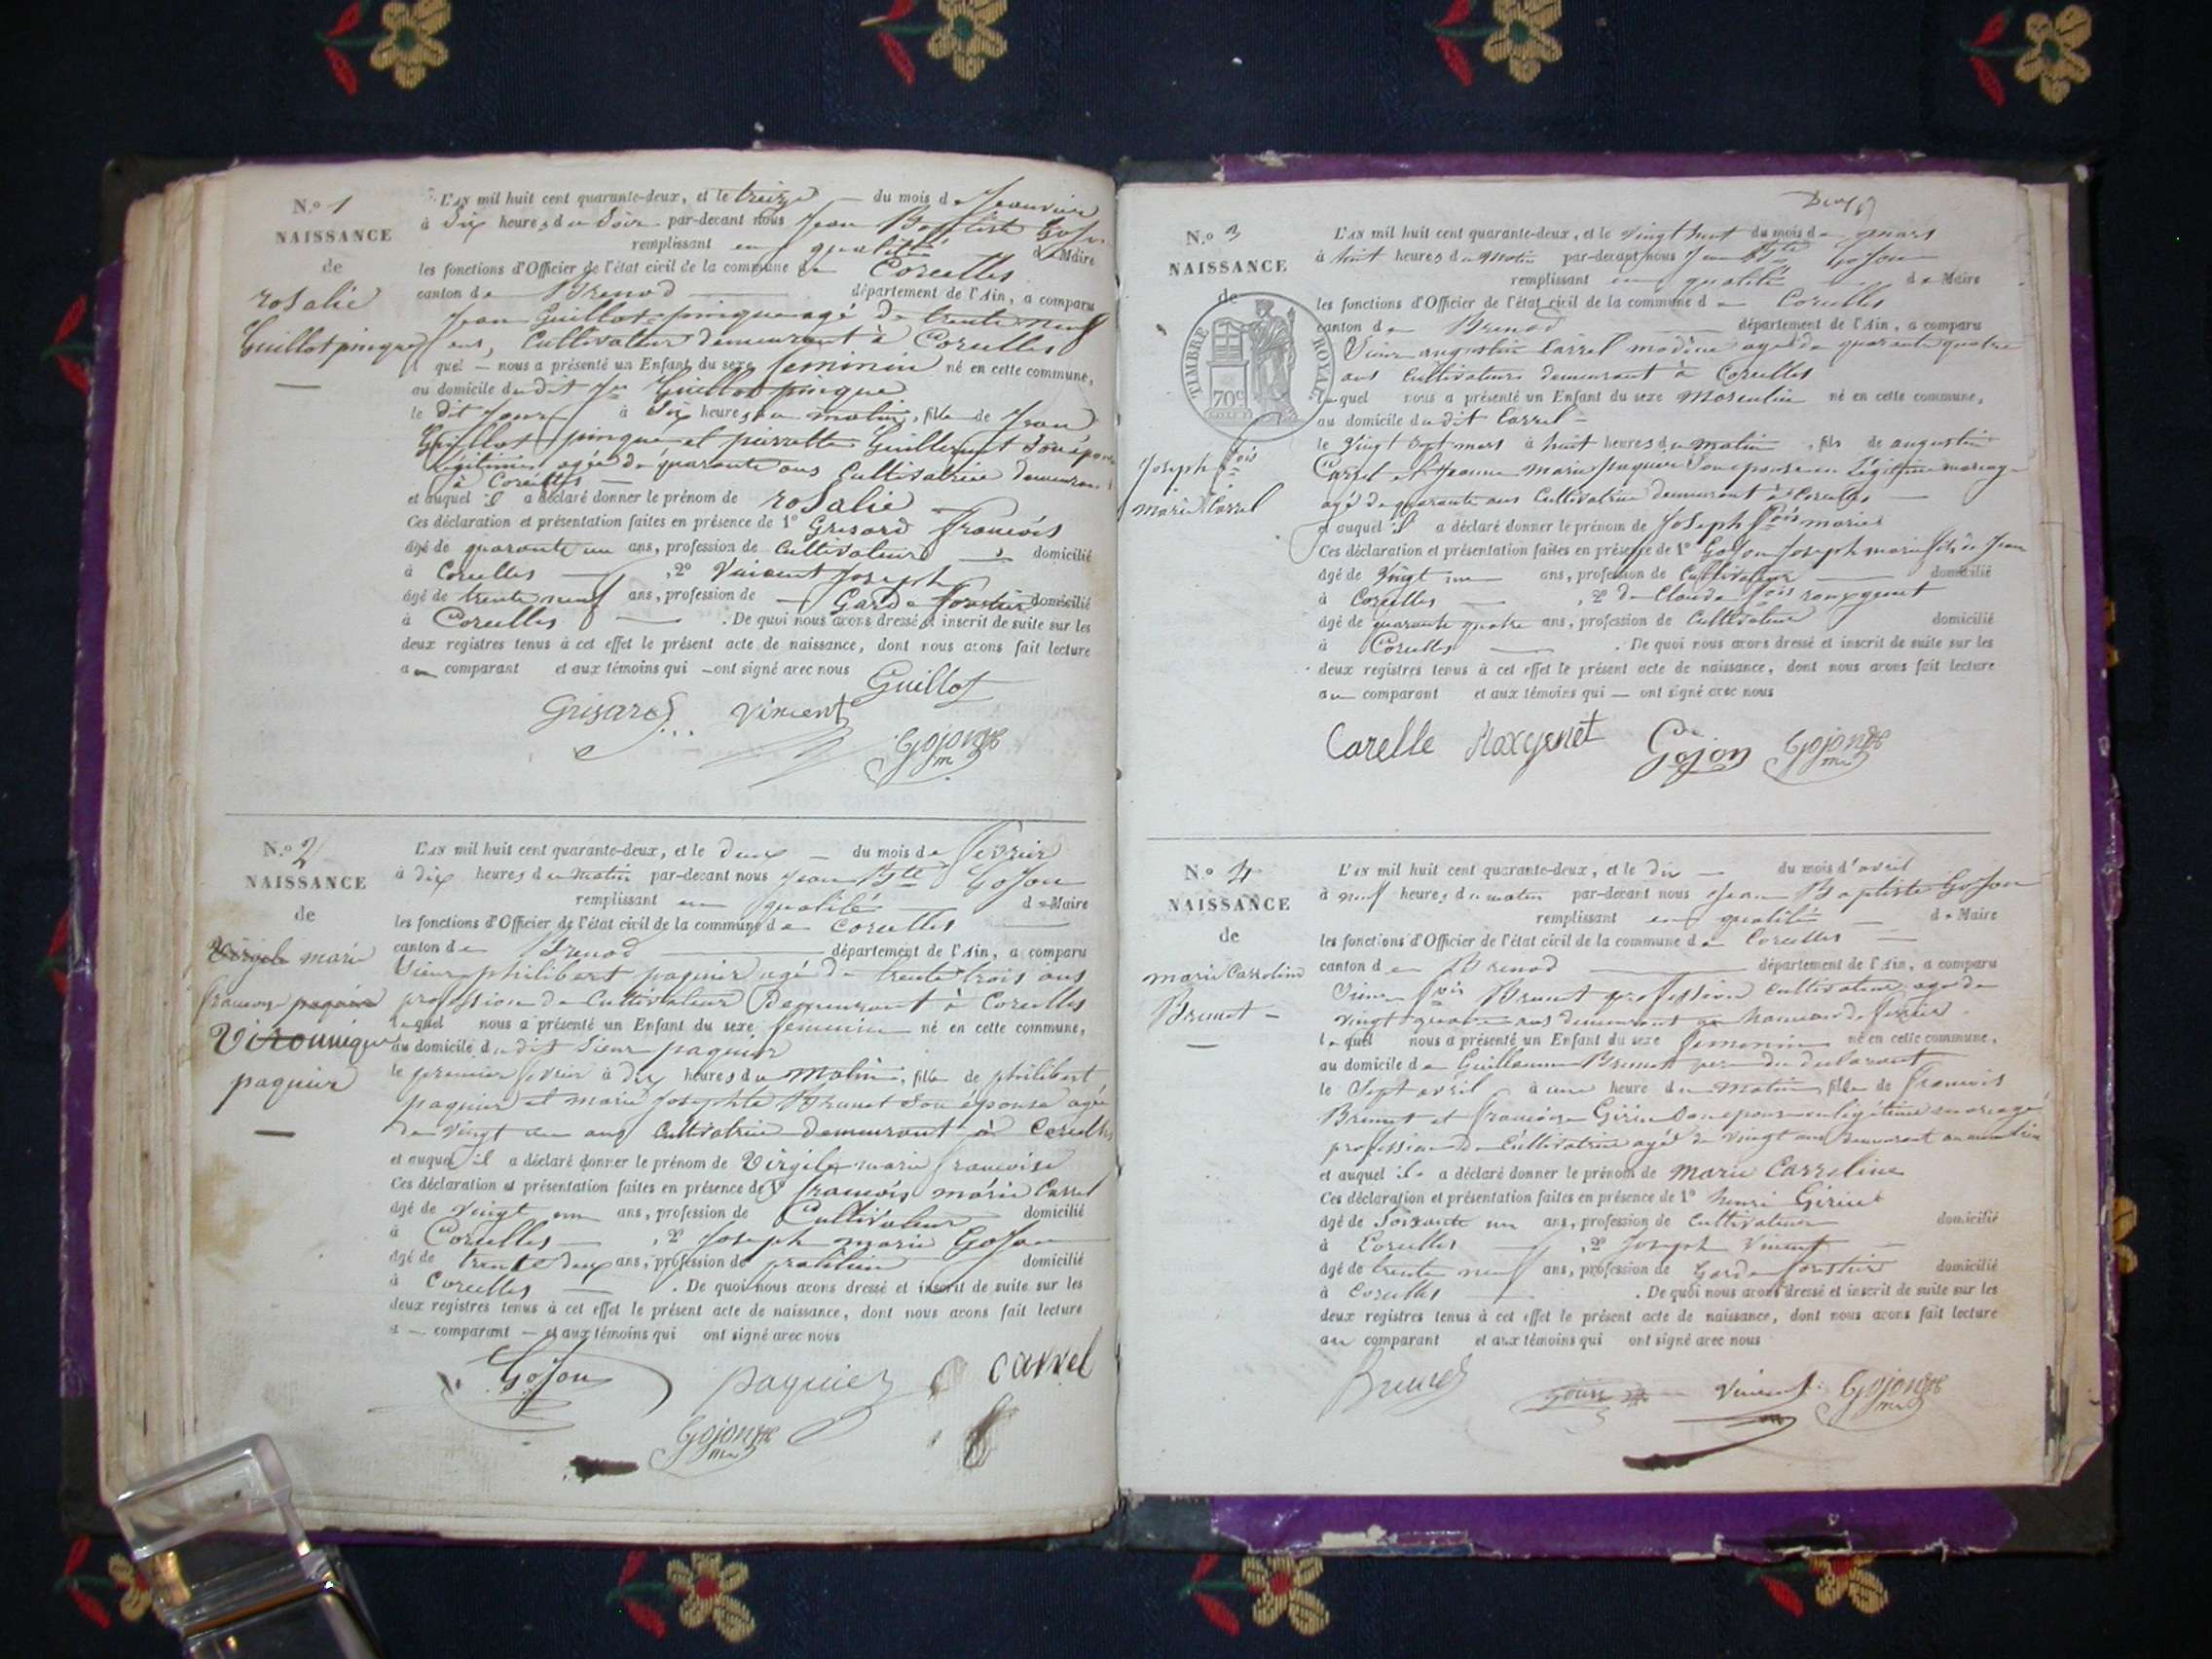 N.º 1
NAISSANCE
de
rosalie
Guillot pinque
L'AN mil huit cent quarante-deux, et le treize du mois de Janvier
à Six heures du Soir par-devant nous Jean Baptiste Gojon
remplissant en qualité de Maire
les fonctions d'Officier de l'état civil de la commune de Corcelles
canton de Brenod département de l'Ain, a comparu
Jean Guillot pinque agé de trente neuf
ans, Cultivateur demeurant à Corcelles
quel nous a présenté un Enfant du sexe feminin né en cette commune,
au domicile du dit Guillot pinque
le dit Jour à Six heures du matin, fille de Jean
Guillot pinque et pierrette Guillermet Son épouse
légitime, agée de quarante ans Cultivatrice demeurant
à Corcelles
et auquel il a déclaré donner le prénom de rosalie
Ces déclaration et présentation faites en présence de 1º Grisard François
âgé de quarante un ans, profession de Cultivateur domicilié
à Corcelles , 2º Vincent Joseph
âgé de trente neuf ans, profession de Garde forestier domicilié
à Corcelles . De quoi nous avons dressé et inscrit de suite sur les
deux registres tenus à cet effet le présent acte de naissance, dont nous avons fait lecture
au comparant et aux témoins qui ont signé avec nous
Guillot
Grisard Vincent
Gojon
N.º 2
NAISSANCE
de
Virgile marie
francoise paquier
Virounique
paquier
L'AN mil huit cent quarante-deux, et le deux du mois de fevrier
à dix heures du matin par-devant nous Jean Bte Gojon
remplissant en qualité de Maire
les fonctions d'Officier de l'état civil de la commune de Corcelles
canton de Brenod département de l'Ain, a comparu
Sieur philibert paquier agé de trente trois ans
profession de Cultivateur Demeurant à Corcelles
lequel nous a présenté un Enfant du sexe feminin né en cette commune,
au domicile du dit Sieur paquier
le premier fevrier à dix heures du matin, fille de philibert
paquier et marie Josephte Brunet Son épouse agée
de vingt ans Cultivatrice demeurant à Corcelles
et auquel il a déclaré donner le prénom de Virgile marie francoise
Ces déclaration et présentation faites en présence de 1º francois marie Carrel
âgé de vingt ans, profession de Cultivateur domicilié
à Corcelles , 2º Joseph marie Gojon
âgé de trente deux ans, profession de praticien domicilié
à Corcelles . De quoi nous avons dressé et inscrit de suite sur les
deux registres tenus à cet effet le présent acte de naissance, dont nous avons fait lecture
a comparant et aux témoins qui ont signé avec nous
Gojon paquier carrel
Gojon
N.º 3
NAISSANCE
de
TIMBRE ROYAL
70c
Joseph fois
marie Carrel
L'AN mil huit cent quarante-deux, et le vingt huit du mois de mars
à huit heures du matin par-devant nous Jean Bte Gojon
remplissant en qualité de Maire
les fonctions d'Officier de l'état civil de la commune de Corcelles
canton de Brenod département de l'Ain, a comparu
Sieur augustin Carrel agé de quarante quatre
ans Cultivateur demeurant à Corcelles
lequel nous a présenté un Enfant du sexe Masculin né en cette commune,
au domicile du dit Carrel
le vingt sept mars à huit heures du matin, fils de augustin
Carrel et Jeanne Marie paquier Son epouse en Légitime mariage
agé de quarante ans Cultivatrice demeurant à Corcelles
et auquel il a déclaré donner le prénom de Joseph fois marie
Ces déclaration et présentation faites en présence de 1º Gojon Joseph marie fils de Jean
âgé de vingt ans, profession de Cultivateur domicilié
à Corcelles , 2º de Claude fois
âgé de quarante quatre ans, profession de Cultivateur domicilié
à Corcelles . De quoi nous avons dressé et inscrit de suite sur les
deux registres tenus à cet effet le présent acte de naissance, dont nous avons fait lecture
au comparant et aux témoins qui ont signé avec nous
Carelle Roxgenet Gojon Gojon
N.º 4
NAISSANCE
de
marie Carroline
Brunet
L'AN mil huit cent quarante-deux, et le dix du mois d'avril
à neuf heures du matin par-devant nous Jean Baptiste Gojon
remplissant en qualité de Maire
les fonctions d'Officier de l'état civil de la commune de Corcelles
canton de Brenod département de l'Ain, a comparu
Sieur fois Brunet profession Cultivateur agé de
vingt quatre ans demeurant au hameau de
lequel nous a présenté un Enfant du sexe feminin né en cette commune,
au domicile de Guillaume Brunet pere du declarant
le Sept avril à une heure du matin, fille de francois
Brunet et francoise Girin Son epouse en légitime mariage
profession de Cultivatrice agée de vingt ans demeurant
et auquel il a déclaré donner le prénom de Marie Carroline
Ces déclaration et présentation faites en présence de 1º henri Girin
âgé de Soixante un ans, profession de Cultivateur domicilié
à Corcelles , 2º Joseph Vincent
âgé de trente neuf ans, profession de Garde forestier domicilié
à Corcelles . De quoi nous avons dressé et inscrit de suite sur les
deux registres tenus à cet effet le présent acte de naissance, dont nous avons fait lecture
au comparant et aux témoins qui ont signé avec nous
Brunet Girin Vincent Gojon